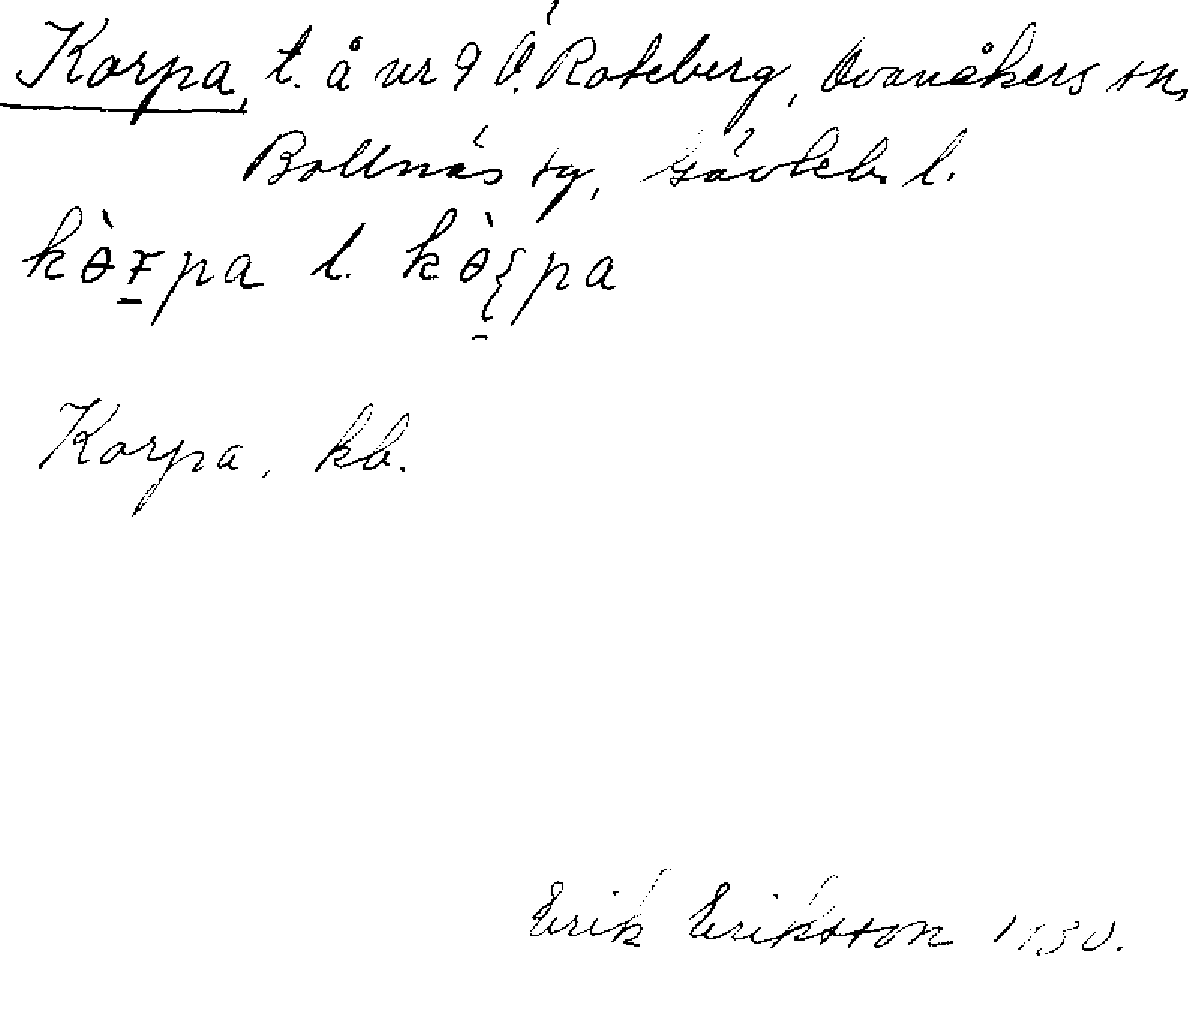 Korpa, t. å nr 9 Ö. Roteberg, Ovanåkers sn,
Bollnäs tg, Gävleb. l.
kò̵rpa l. kò̵ pa
Korpa, kb.
Erik Eriksson 1930.